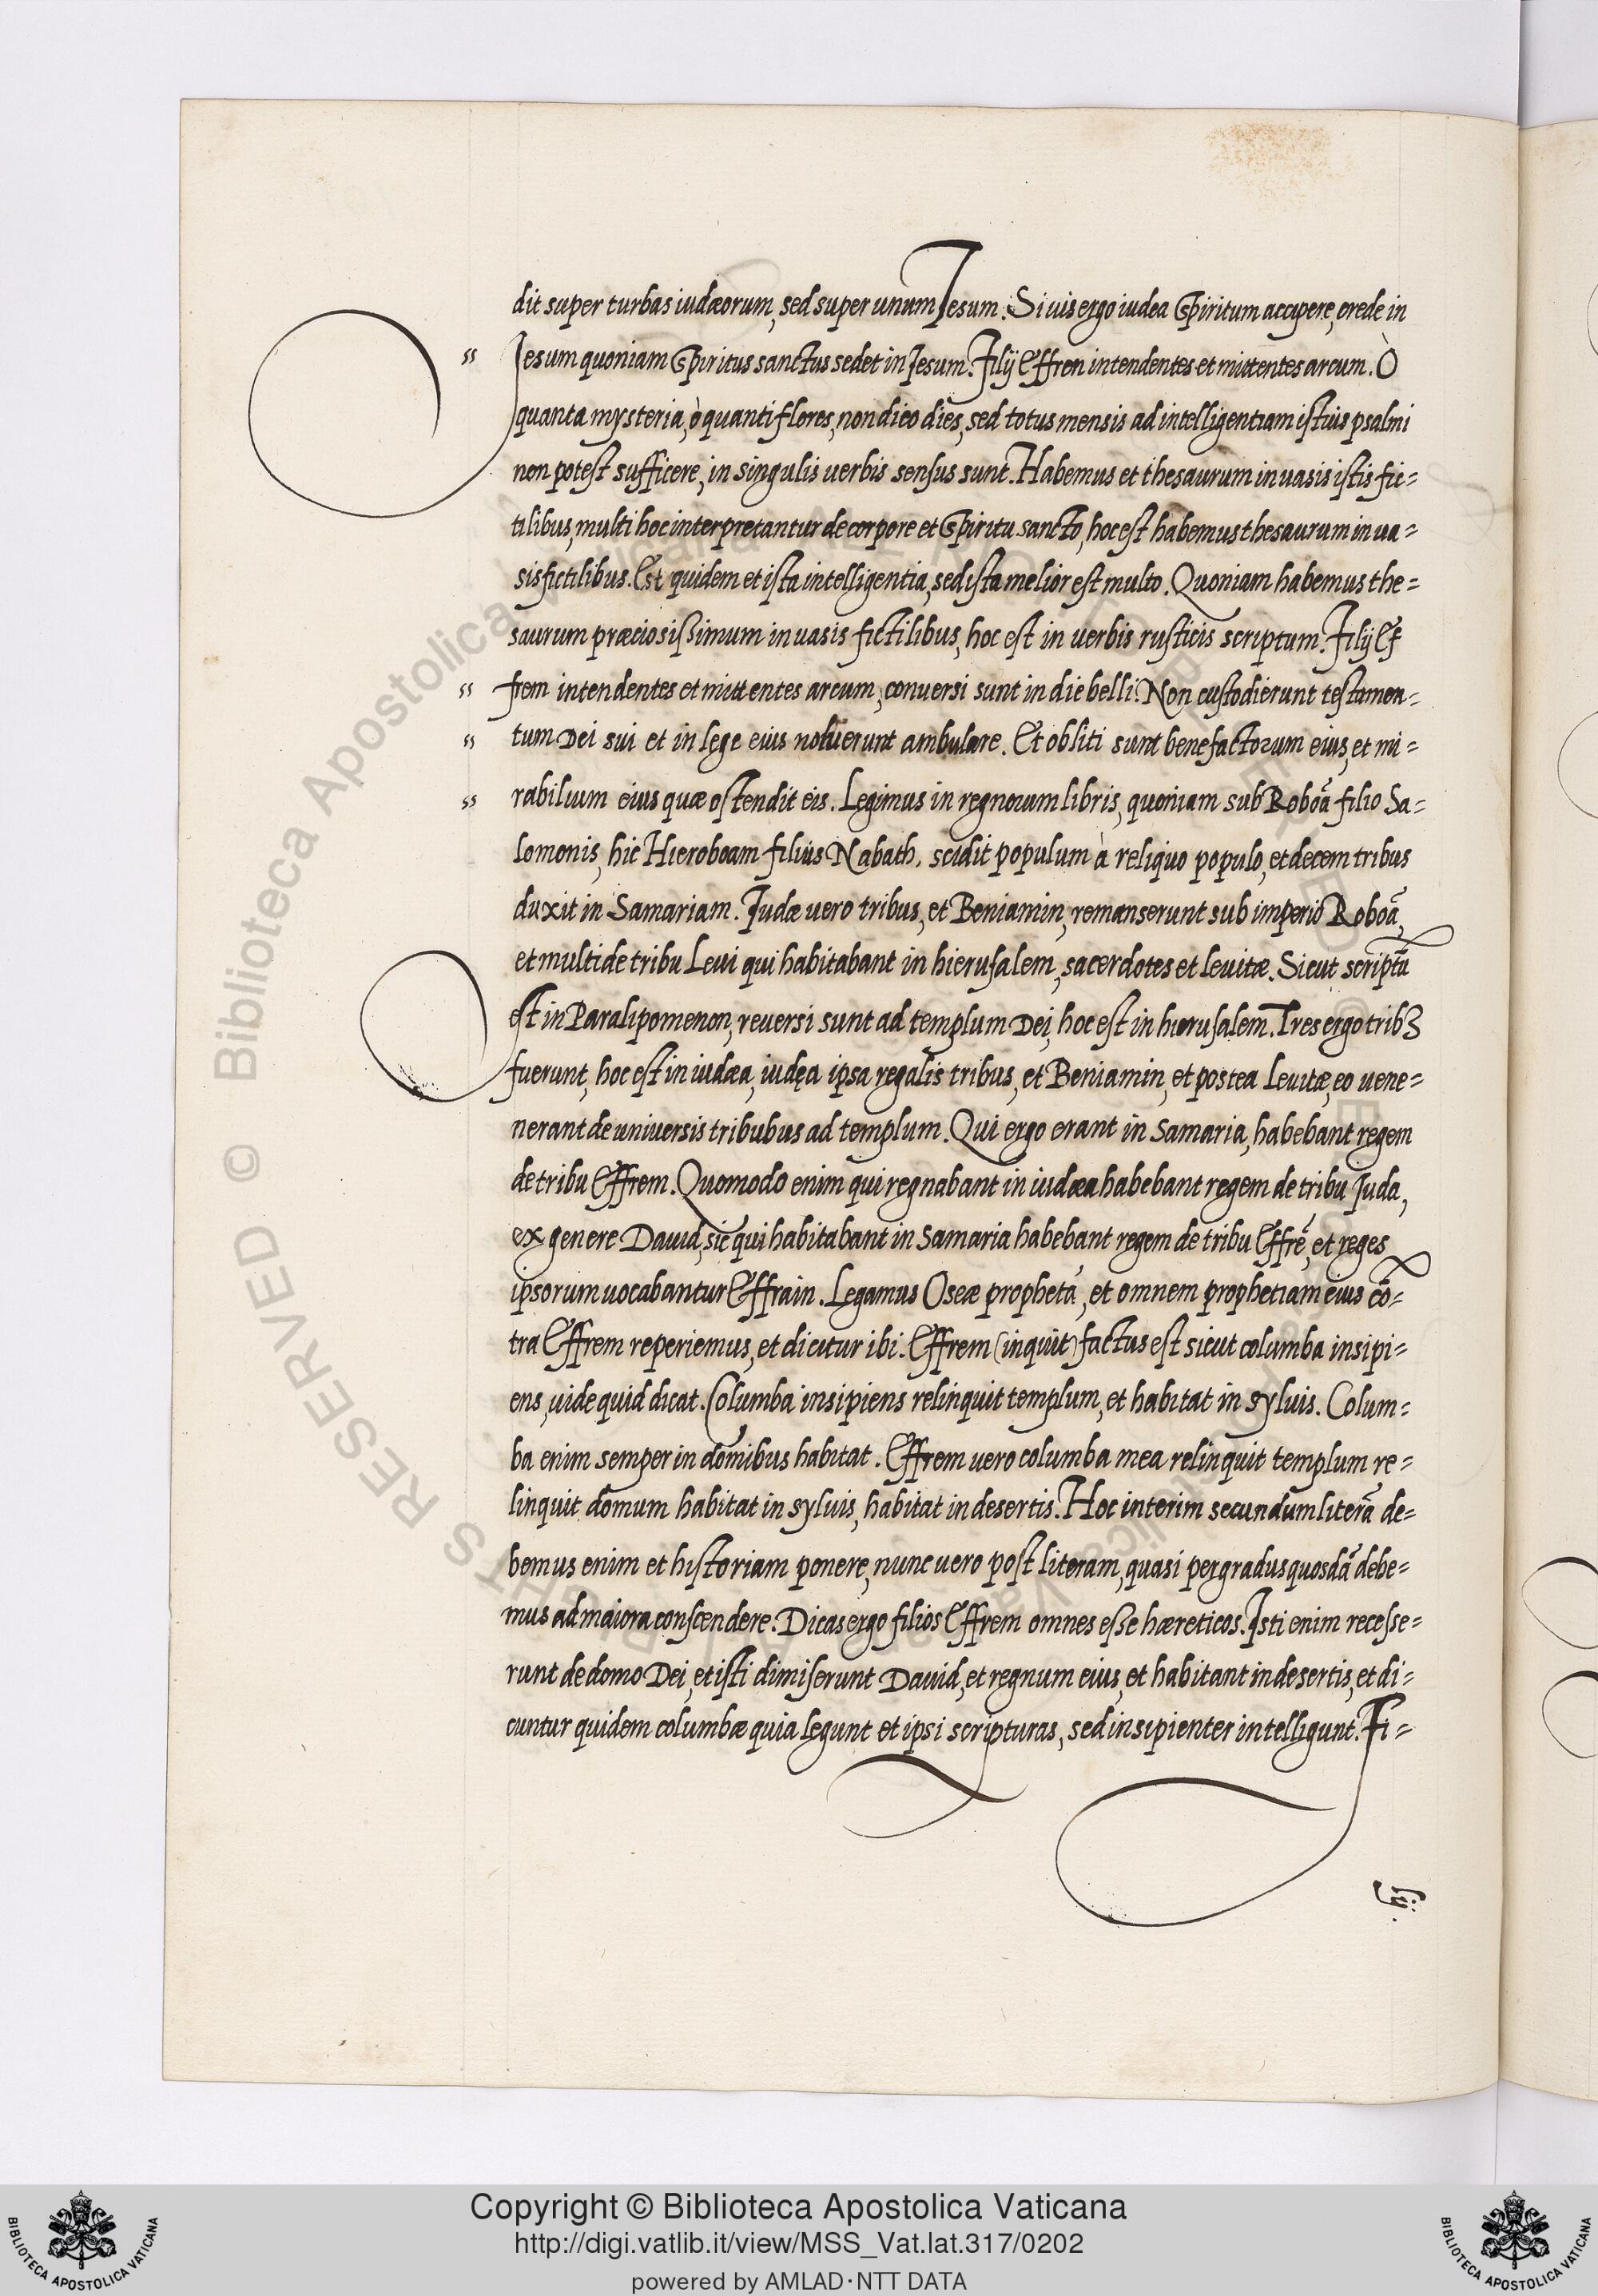 dit super turbas iudæorum, sed super unum Iesum. Si uis ergo iudea Spiritum accipere, crede in
Iesum quoniam Spiritus sanctus sedet in Iesum. Filij Effren intendentes et mittentes arcum. Ò
quanta mysteria, ò quanti flores, non dico dies, sed totus mensis ad intelligentiam istius psalmi
non potest sufficere, in singulis uerbis sensus sunt. Habemus et thesaurum in uasis istis fic=
tilibus, multi hoc interpretantur de corpore et Spiritu sancto, hoc est habemus thesaurum in ua=
sis fictilibus. Est quidem et ista intelligentia, sed ista melior est multo. Quoniam habemus the=
saurum præciosissimum in uasis fictilibus, hoc est in uerbis rusticis scriptum. Filij Ef
frem intendentes et mittentes arcum, conuersi sunt in die belli. Non custodierunt testamen=
tum Dei sui et in lęge eius noluerunt ambulare. Et obliti sunt benefactorum eius, et mi=
rabilium eius quæ ostendit eis. Legimus in regnorum libris, quoniam sub Roboã filio Sa=
lomonis, hic Hieroboam filius Nabath, scidit populum à reliquo populo, et decem tribus
duxit in Samariam. Iudæ uero tribus, et Beniamin, remanserunt sub imperio Roboã,
et multi de tribu Leui qui habitabant in hierusalem, sacerdotes et leuitæ. Sicut scriptũ
est in Paralipomenon, reuersi sunt ad templum Dei, hoc est in hierusalem. Tres ergo tribꝫ
fuerunt, hoc est in iudæa, iudęa ipsa regalis tribus, et Beniamin, et postea Leuitæ, eo uene=
nerant de uniuersis tribubus ad templum. Qui ergo erant in Samaria, habebant regem
de tribu Effrem. Quomodo enim qui regnabant in iudæa habebant regem de tribu Iuda,
ex genere Dauid, sic qui habitabant in Samaria habebant regem de tribu Effrẽ, et reges
ipsorum uocabantur Effrain. Legamus Oseæ prophetã, et omnem prophetiam eius cõ=
tra Effrem reperiemus, et dicitur ibi. Effrem (inquit) factus est sicut columba insipi=
ens, uide quid dicat. Columba insipiens relinquit templum, et habitat in syluis. Colum=
ba enim semper in domibus habitat. Effrem uero columba mea relinquit templum re=
linquit domum habitat in syluis, habitat in desertis. Hoc interim secundum literã de=
bemus enim et historiam ponere, nunc uero post literam, quasi per gradus quosdã debe=
mus ad maiora conscendere. Dicas ergo filios Effrem omnes esse hæreticos. Isti enim recesse=
runt de domo Dei, et isti dimiserunt Dauid, et regnum eius, et habitant in desertis, et di=
cuntur quidem columbæ quia legunt et ipsi scripturas, sed insipienter intelligunt. Fi=
lij.
© Biblioteca Apostolica Vaticana
Copyright © Biblioteca Apostolica Vaticana
http://digi.vatlib.it/view/MSS_Vat.lat.317/0202
powered by AMLAD·NTT DATA
BIBLIOTECA APOSTOLICA VATICANA
BIBLIOTECA APOSTOLICA VATICANA